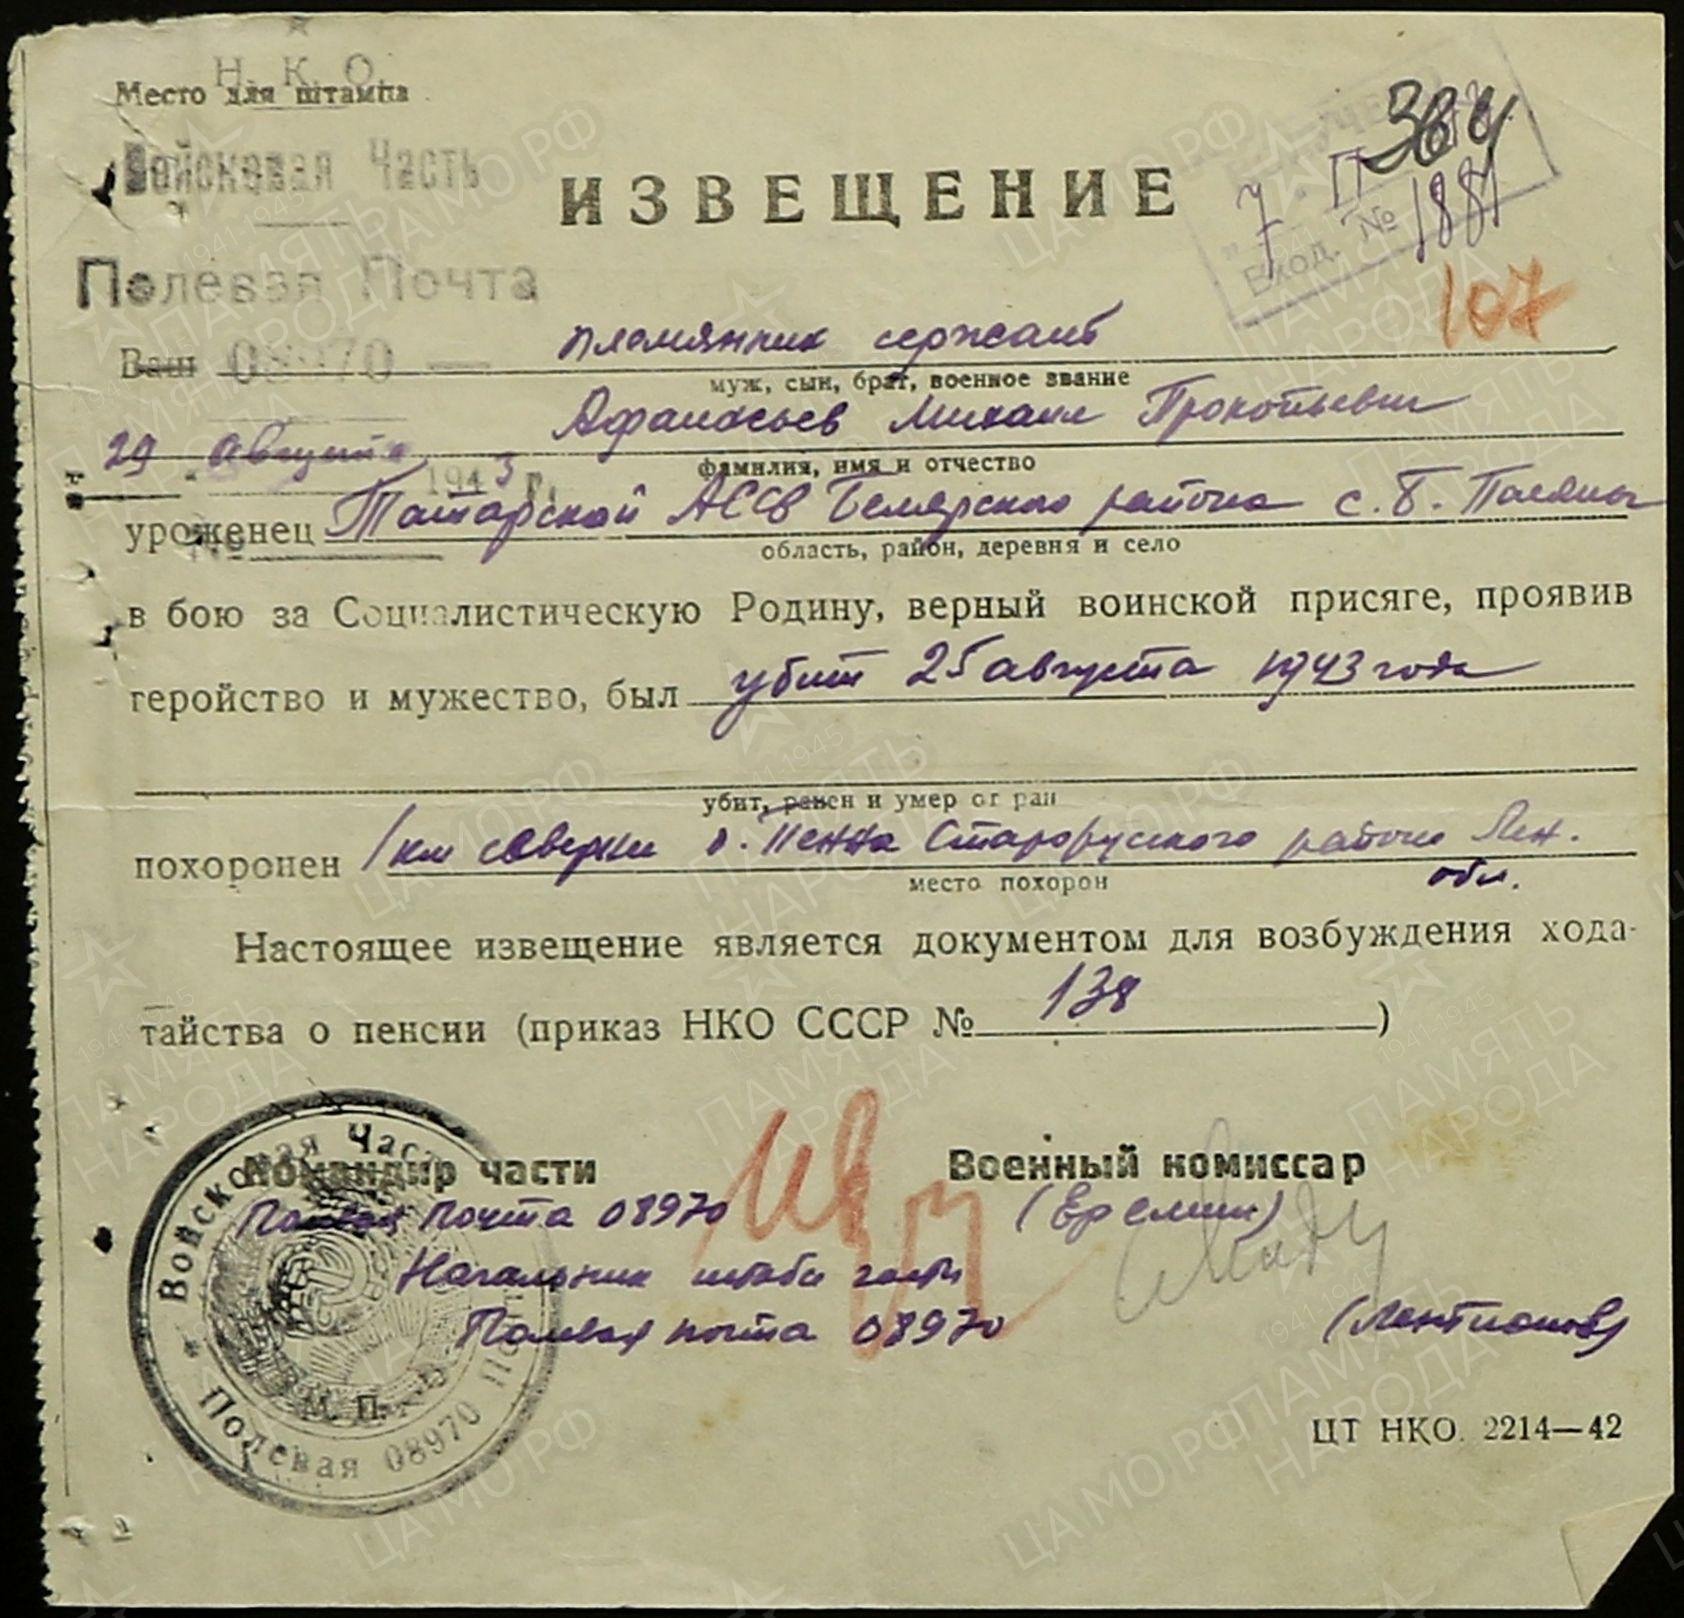 Н К О
Место для штампа
Войсковая Часть
Полевая Почта
ИЗВЕЩЕНИЕ
364
7 · II
Вход. № 1881
107
Ваш 08970 — племянник сержант
муж, сын, брат, военное звание
Афанасьев Михаил Прокопьевич
29 августа 1943 г.
фамилия, имя и отчество
уроженец Татарской АССР Билярского района с. Б. Поляны
№
область, район, деревня и село
в бою за Социалистическую Родину, верный воинской присяге, проявив
геройство и мужество, был убит 25 августа 1943 года
убит, ранен и умер от ран
похоронен 1 км северней д. Пенна Старорусского района Лен.
обл.
место похорон
Настоящее извещение является документом для возбуждения хода-
тайства о пенсии (приказ НКО СССР № 138)
Командир части
Военный комиссар
Полевая Почта 08970
(Еремин)
Начальник штаба части
Полевая почта 08970
(Лентионов)
М. П.
Войсковая Часть
Полевая Почта 08970
ЦТ НКО. 2214—42
ЦА МО РФ
ПАМЯТЬ НАРОДА
1941-1945